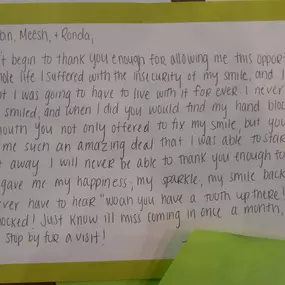 bin, Meesh, + Ronda,
't begin to thank you enough for allowing me this oppor
hole life I suffered with the insecurity of my smile, and I
t I was going to have to live with it for ever. I never
smiled, and when I did you would find my hand bloc
mouth. You not only offered to fix my smile, but you
me such an amazing deal that I was able to star
t away. I will never be able to thank you enough to
gave me my happiness, my sparkle, my smile back
ever have to hear "woah you have a tooth up there!
hocked! Just know ill miss coming in once a month,
stop by for a visit!